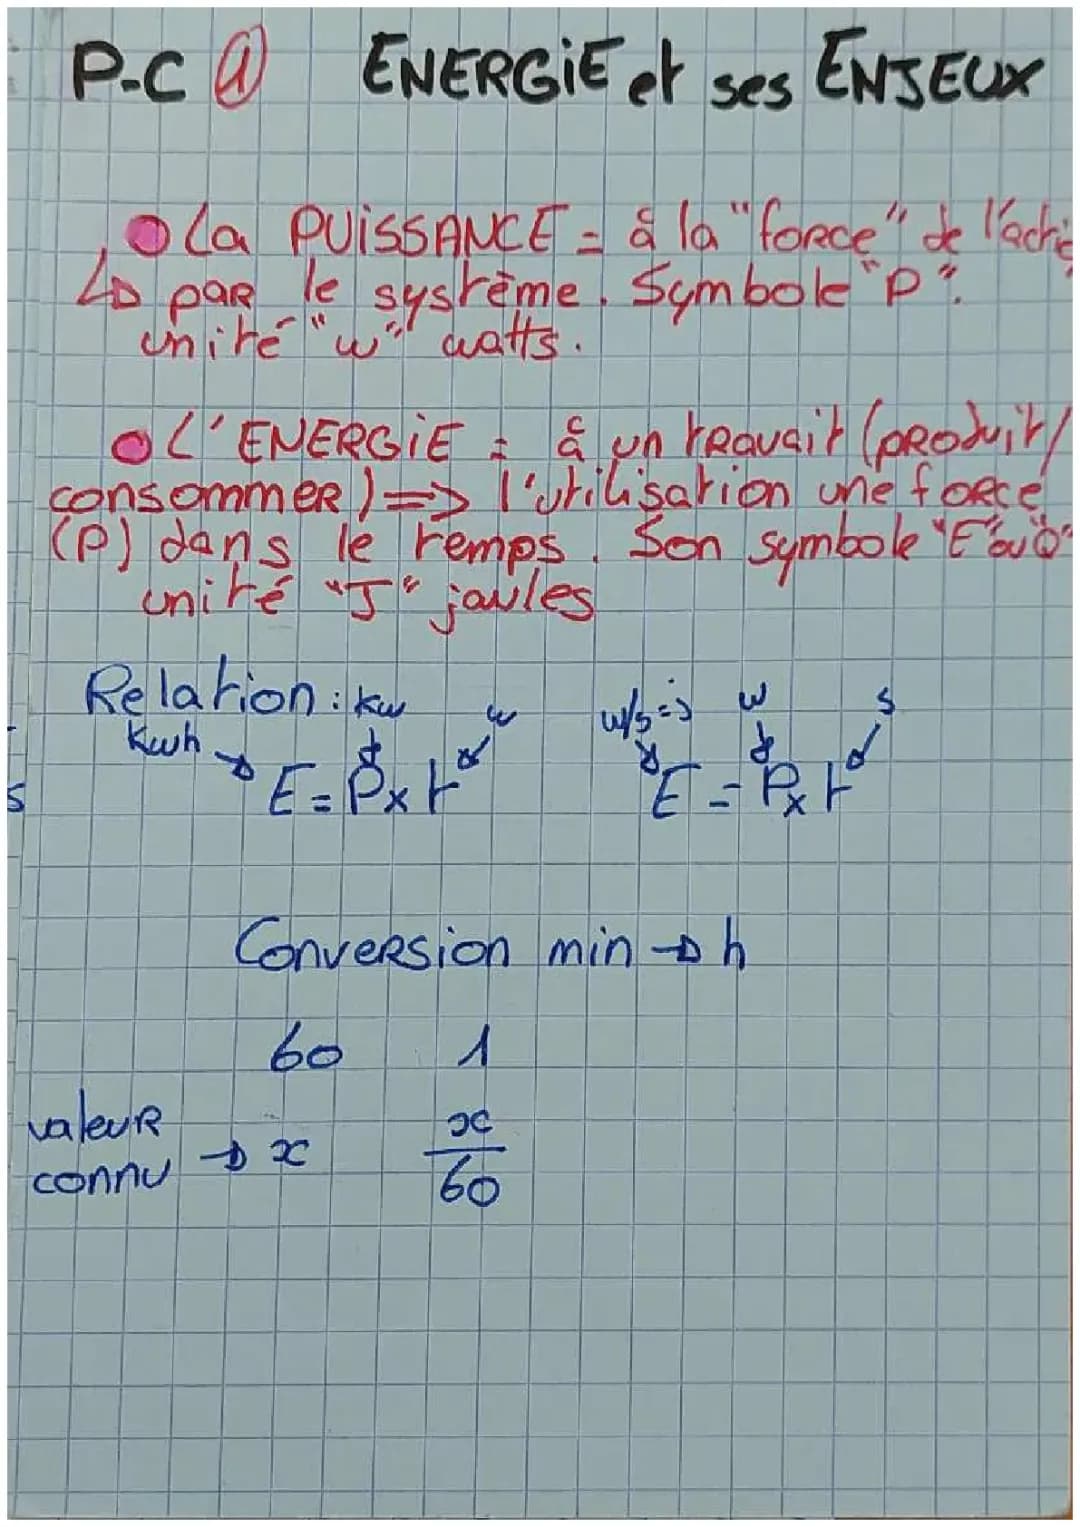 P-C ① ENERGiE et ses ENJEUX
La PUiSSANCE = à la "force" de l'actio
↳ par le système. Symbole "P".
unité "w" watts.
L'ENERGiE = à un travait (produit/
consommer) => l'utilisation une force
(P) dans le temps. Son symbole "E" ou "Q"
unité "J" joules
Relation : kw w w/s=j w s
Kwh → E = P x t E = P x t
s
Conversion min → h
60 1
valeur connu → x x/60